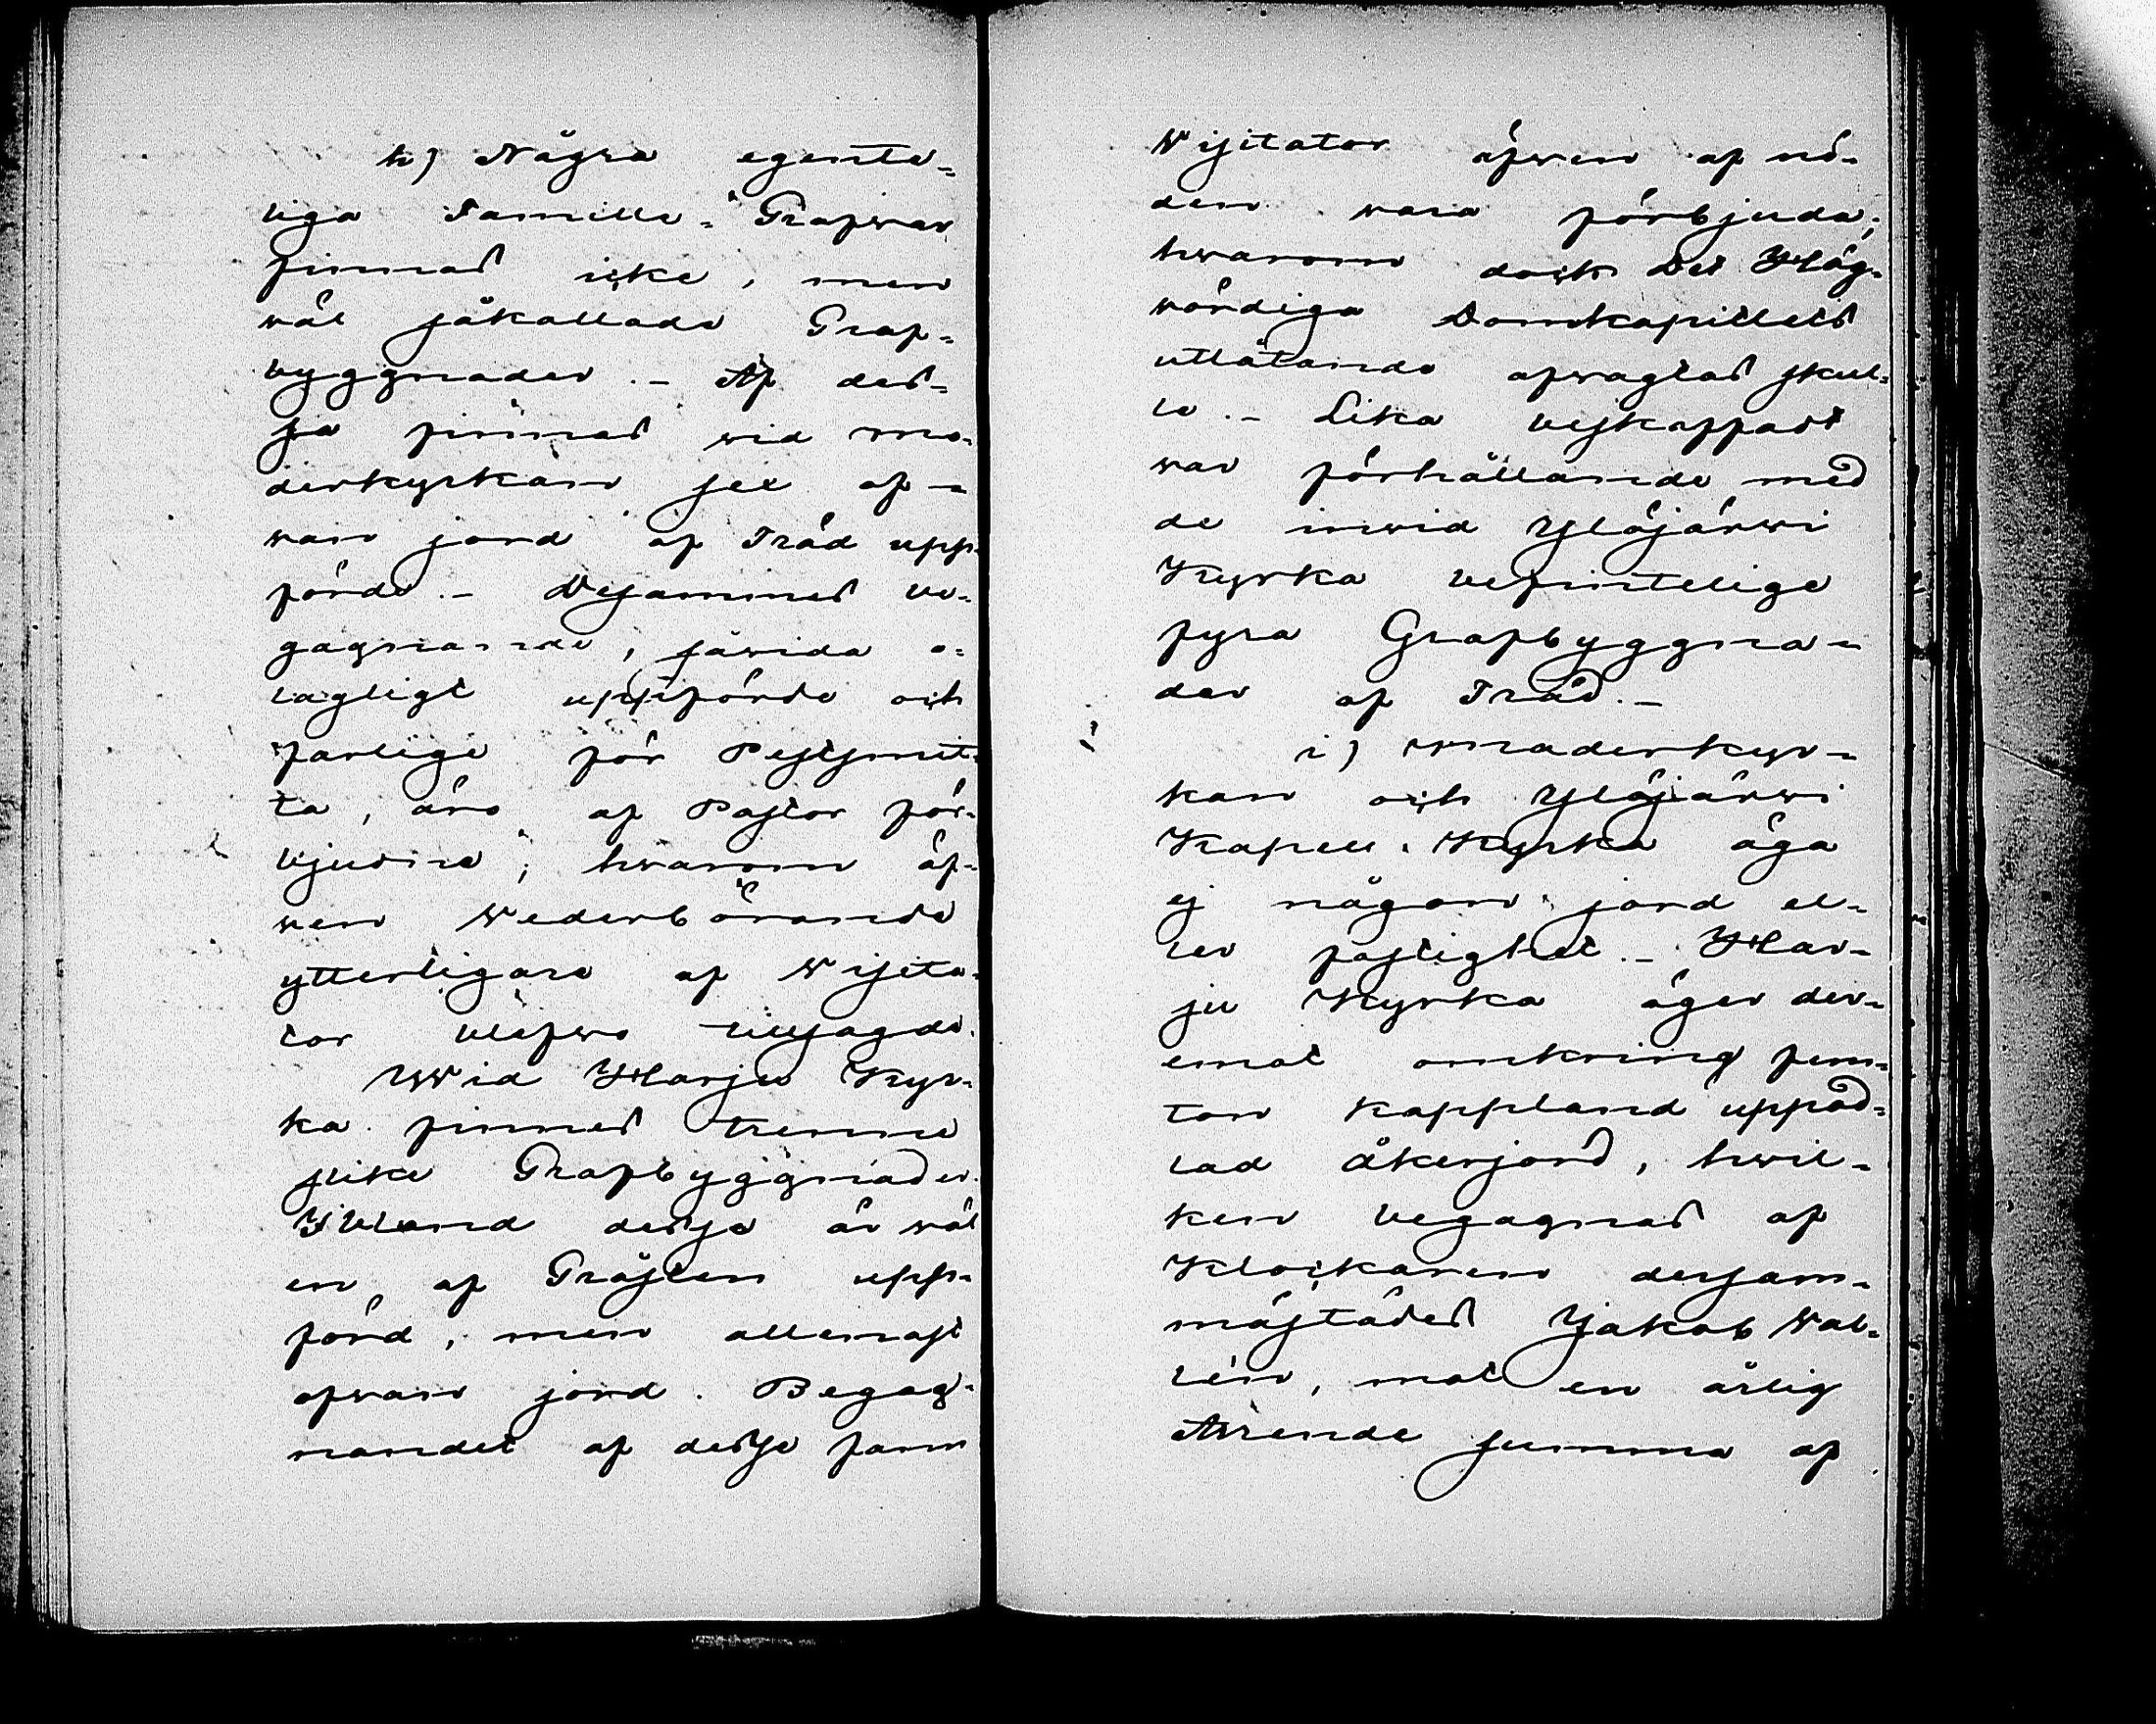 h) Några egente-
liga Famille-Grafvar
finnas icke, men
wäl såkallade Graf-
byggnader. - Af des-
sa finnas vid mo-
derkyrkan sex of-
van jord af Träd upp-
förde. - Desammas be-
gagnande, såvida o-
lagligt uppförde och
farlige för Pestsmit-
ta, äro af Pastor för-
bjudne; hvarom äf-
ven Wederbörande
ytterligare af Wisita-
tor blefvo tillsagde.
Wid Harju Kyr-
ka finnes trenne
slike Grafbyggnader.
Ibland dessa är väl
en af Gråsten upp-
förd, men allenast
ofvan jord. Begag-
nandet af dessa fann
Wisitator äfven af nö-
den vara förbjuda;
hvarom dock Det Hög-
vördiga Domkapitlets
utlåtande afvagtas skul-
le. - Lika beskaffadt
var förhållande med
de invid Ylöjärvi
Kyrka befintelige
fyra Grafbyggna-
der af Träd. -
i) Moderkyr-
kan och Ylöjärvi
Kapell-Kyrka äga
ej någon jord el-
ler fastighet. - Har-
ju Kyrka äger der-
emot omkring fem-
ton kappland uppod-
lad åkerjord, hvil-
ken begagnas af
Klockaren dersam-
mastädes Jakob Wal-
lén, mot en årlig
Arende summa af